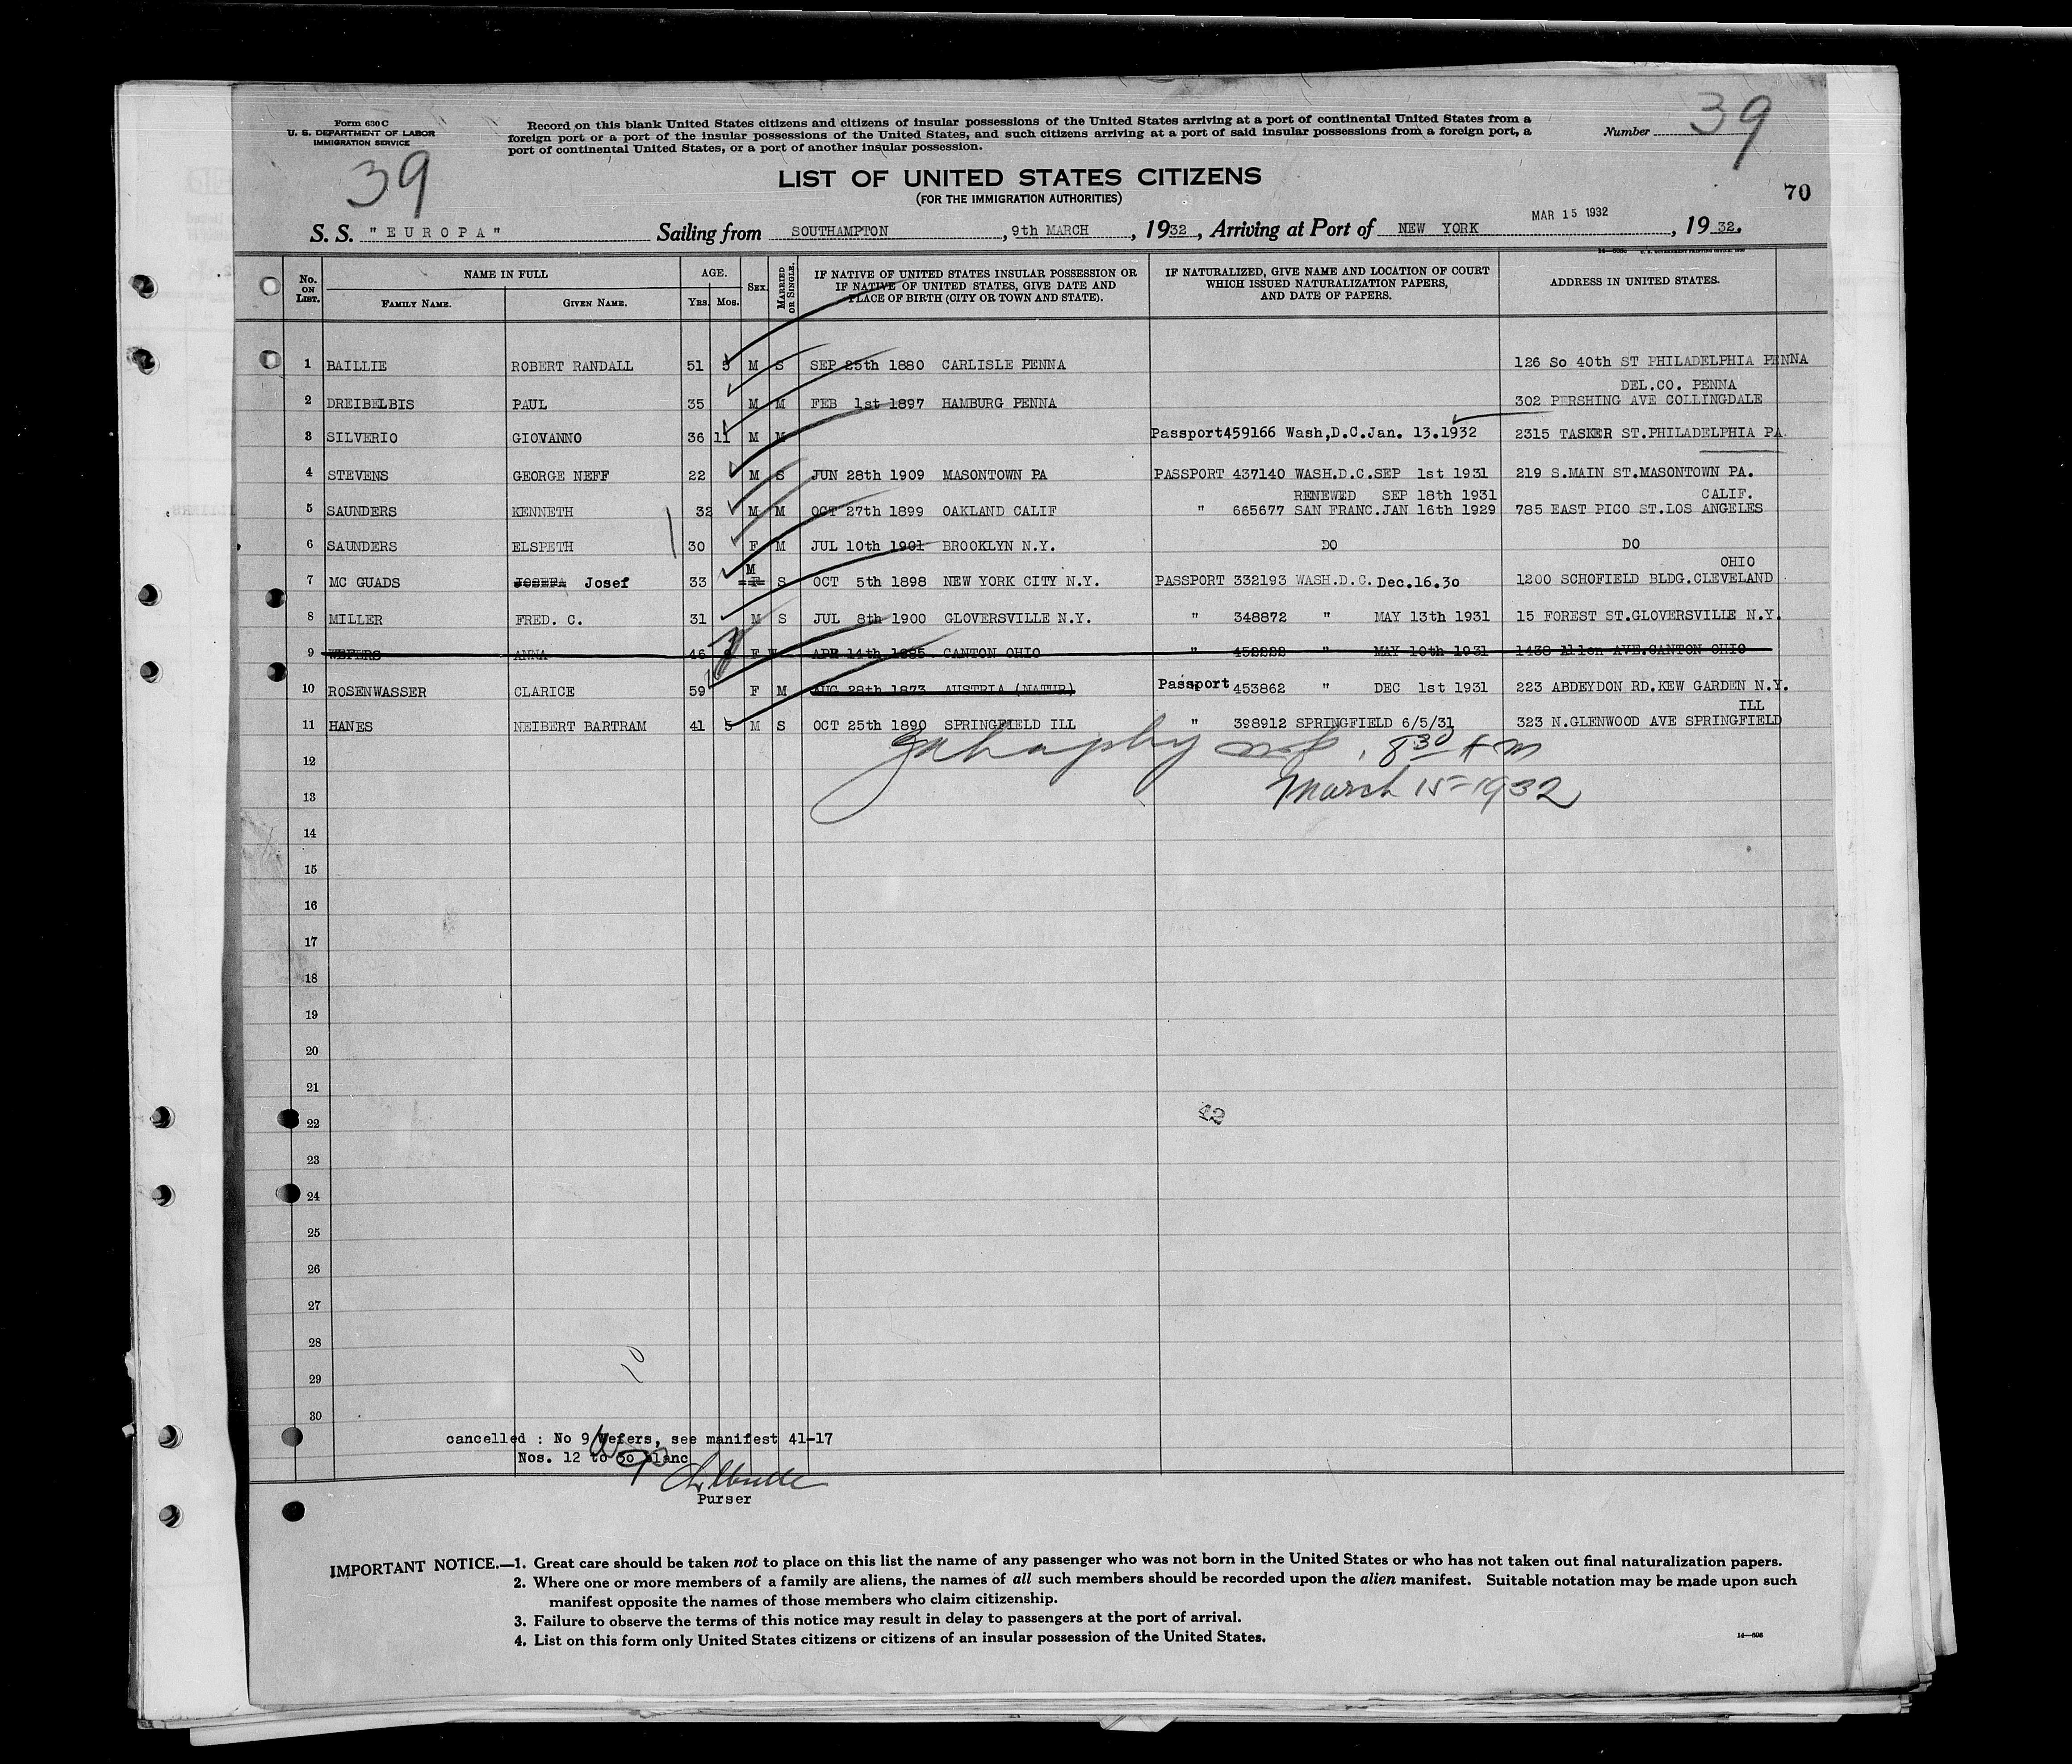 Form 630 C
U. S. DEPARTMENT OF LABOR
IMMIGRATION SERVICE
39
Record on this blank United States citizens and citizens of insular possessions of the United States arriving at a port of continental United States from a
foreign port or a port of the insular possessions of the United States, and such citizens arriving at a port of said insular possessions from a foreign port, a
port of continental United States, or a port of another insular possession.
Number 39
LIST OF UNITED STATES CITIZENS
(FOR THE IMMIGRATION AUTHORITIES)
70
S. S. "EUROPA" Sailing from SOUTHAMPTON, 9th MARCH, 1932, Arriving at Port of NEW YORK MAR 15 1932, 1932.
No. ON LIST. NAME IN FULL FAMILY NAME. GIVEN NAME. AGE. Yrs. Mos. SEX. MARRIED OR SINGLE. IF NATIVE OF UNITED STATES INSULAR POSSESSION OR IF NATIVE OF UNITED STATES, GIVE DATE AND PLACE OF BIRTH (CITY OR TOWN AND STATE). IF NATURALIZED, GIVE NAME AND LOCATION OF COURT WHICH ISSUED NATURALIZATION PAPERS, AND DATE OF PAPERS. ADDRESS IN UNITED STATES.
1 BAILLIE ROBERT RANDALL 51 5 M S SEP 25th 1880 CARLISLE PENNA 126 So 40th ST PHILADELPHIA PENNA
DEL.CO. PENNA
2 DREIBELBIS PAUL 35 M M FEB 1st 1897 HAMBURG PENNA 302 PERSHING AVE COLLINGDALE
3 SILVERIO GIOVANNO 36 11 M M Passport459166 Wash,D.C.Jan. 13.1932 2315 TASKER ST.PHILADELPHIA PA.
4 STEVENS GEORGE NEFF 22 M S JUN 28th 1909 MASONTOWN PA PASSPORT 437140 WASH.D.C.SEP 1st 1931 219 S.MAIN ST.MASONTOWN PA.
RENEWED SEP 18th 1931 CALIF.
5 SAUNDERS KENNETH 32 M M OCT 27th 1899 OAKLAND CALIF " 665677 SAN FRANC.JAN 16th 1929 785 EAST PICO ST.LOS ANGELES
6 SAUNDERS ELSPETH 30 F M JUL 10th 1901 BROOKLYN N.Y. DO DO
M OHIO
7 MC GUADS JOSEFA Josef 33 F S OCT 5th 1898 NEW YORK CITY N.Y. PASSPORT 332193 WASH.D.C. Dec.16.30 1200 SCHOFIELD BLDG.CLEVELAND
8 MILLER FRED. C. 31 M S JUL 8th 1900 GLOVERSVILLE N.Y. " 348872 " MAY 13th 1931 15 FOREST ST.GLOVERSVILLE N.Y.
9 WEFERS ANNA 46 F APR 14th 1885 CANTON OHIO " " MAY 10th 1931 1438 Allen AVE.CANTON OHIO
10 ROSENWASSER CLARICE 59 F M AUG 28th 1873 AUSTRIA (NATUR) Passport 453862 " DEC 1st 1931 223 ABDEYDON RD.KEW GARDEN N.Y.
ILL
11 HANES NEIBERT BARTRAM 41 5 M S OCT 25th 1890 SPRINGFIELD ILL " 398912 SPRINGFIELD 6/5/31 323 N.GLENWOOD AVE SPRINGFIELD
8 30 A m
12
March 15-1932
13
14
15
16
17
18
19
20
21
22
23
24
25
26
27
28
29
10
30
cancelled : No 9 Wefers, see manifest 41-17
Nos. 12 to 30 blanc
Purser
IMPORTANT NOTICE.—1. Great care should be taken not to place on this list the name of any passenger who was not born in the United States or who has not taken out final naturalization papers.
2. Where one or more members of a family are aliens, the names of all such members should be recorded upon the alien manifest. Suitable notation may be made upon such
manifest opposite the names of those members who claim citizenship.
3. Failure to observe the terms of this notice may result in delay to passengers at the port of arrival.
4. List on this form only United States citizens or citizens of an insular possession of the United States.